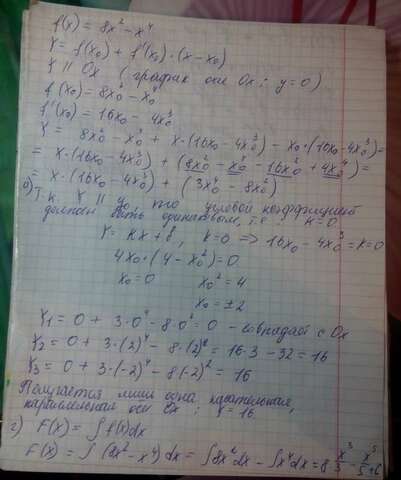 f(x) = 8x² - x⁴
Y = f(x₀) + f'(x₀)·(x-x₀)
Y || Ox (график оси Ox: y=0)
f(x₀) = 8x₀² - x₀⁴
f'(x₀) = 16x₀ - 4x₀³
Y = 8x₀² - x₀⁴ + x·(16x₀ - 4x₀³) - x₀·(16x₀ - 4x₀³) =
= x·(16x₀ - 4x₀³) + (8x₀² - x₀⁴ - 16x₀² + 4x₀⁴) =
= x·(16x₀ - 4x₀³) + (3x₀⁴ - 8x₀²)
Т.к. Y || y, то угловой коэффициент
должен быть одинаковым, т.е. k=0
Y = kx + b, k=0 => 16x₀ - 4x₀³ = k = 0
4x₀·(4 - x₀²) = 0
x₀ = 0 x₀² = 4
x₀ = ±2
Y₁ = 0 + 3·0⁴ - 8·0² = 0 - совпадает с Ox
Y₂ = 0 + 3·(2)⁴ - 8·(2)² = 16·3 - 32 = 16
Y₃ = 0 + 3·(-2)⁴ - 8(-2)² = 16
Получается лишь одна касательная,
параллельная оси Ox: Y = 16
г) F(x) = ∫f(x)dx
F(x) = ∫(8x² - x⁴)dx = ∫8x²dx - ∫x⁴dx = 8 x³/3 - x⁵/5 + C